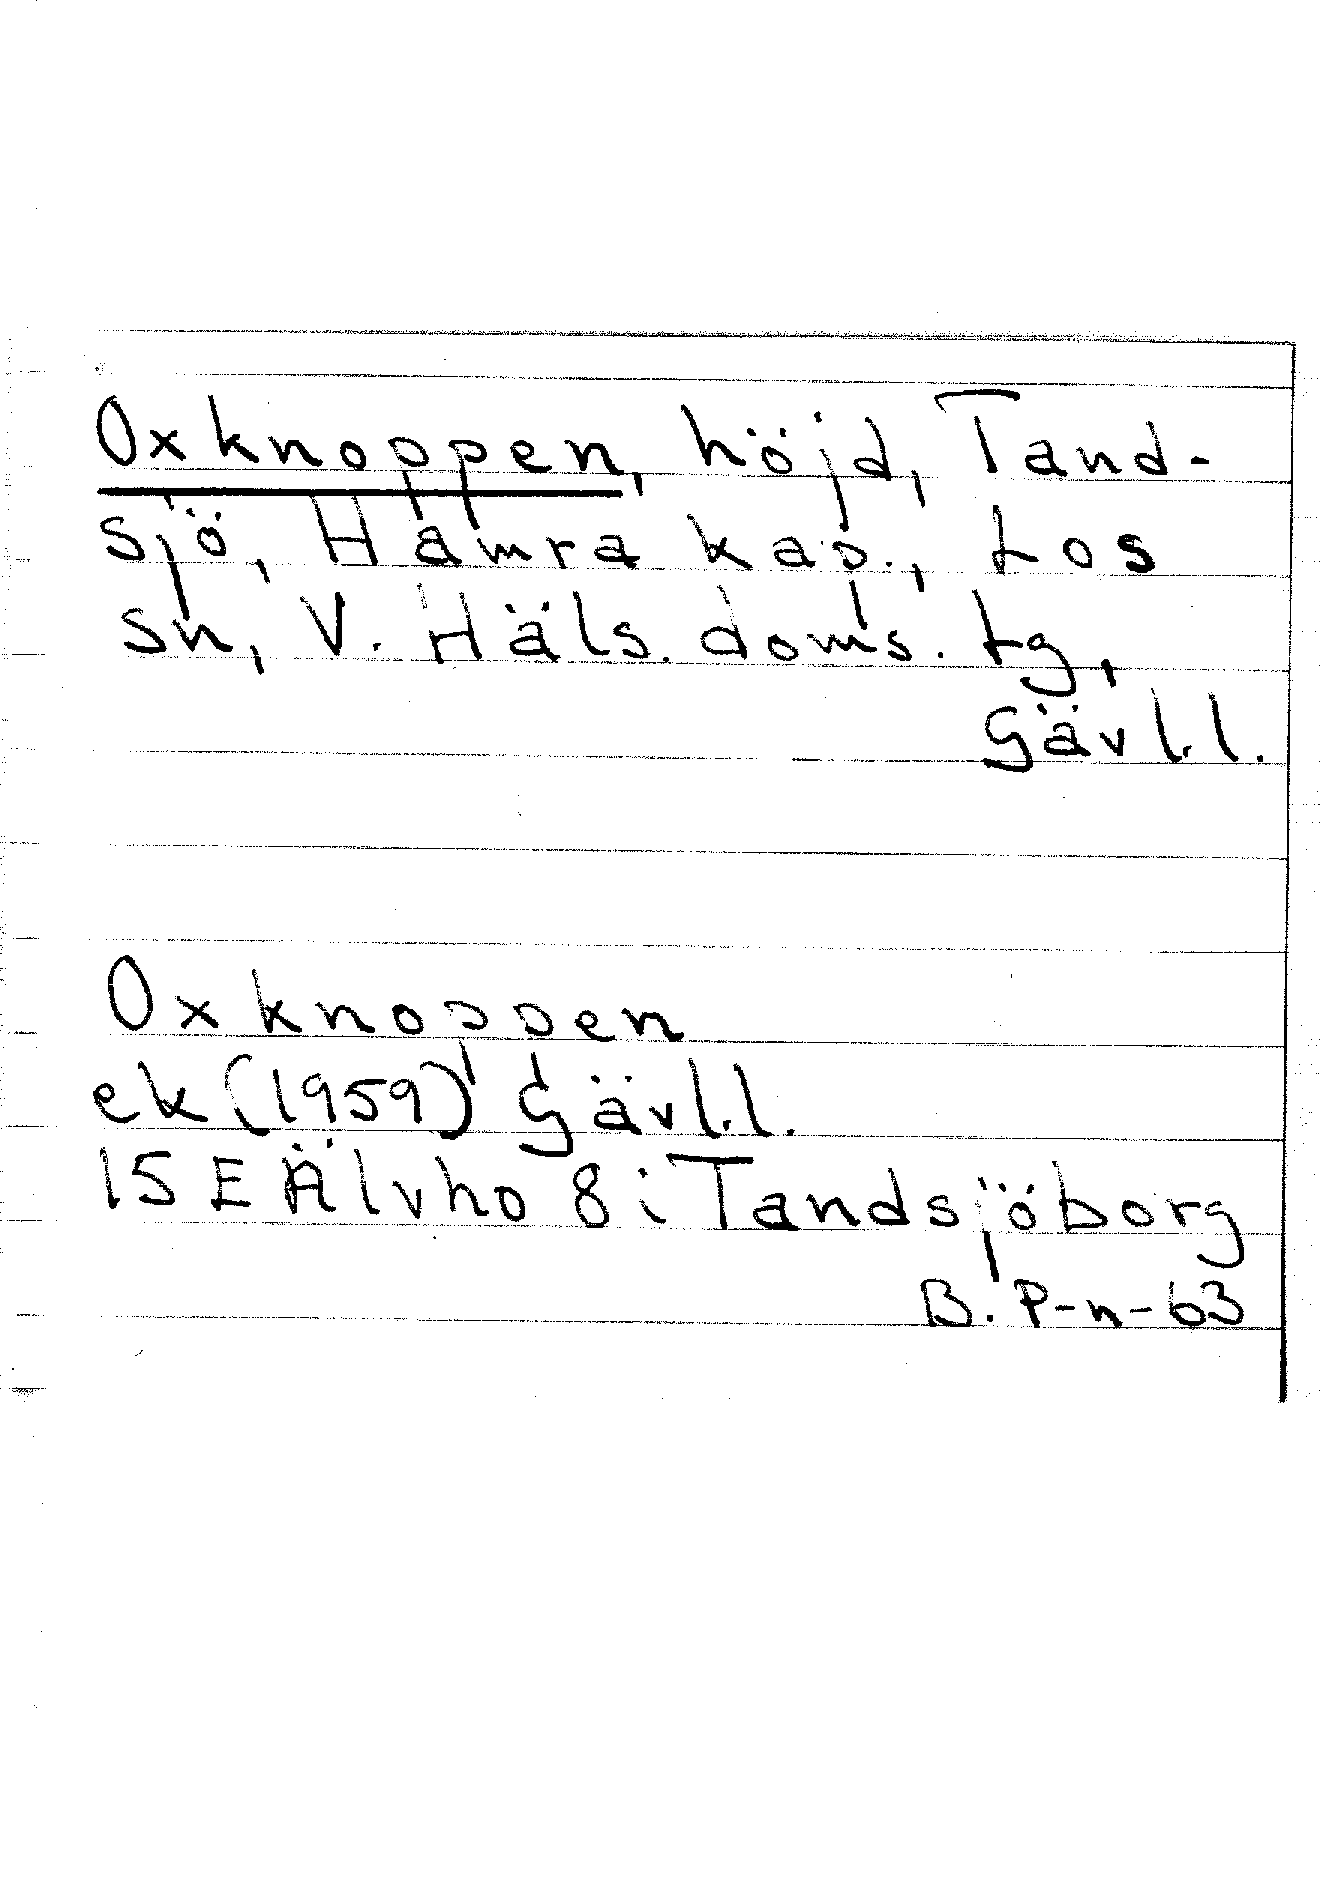 Oxknoppen, höjd, Tand-
sjö, Hamra kap., Los
sn, V. Häls. doms. tg,
Gävl.l.
Oxknoppen
ek (1959) Gävl.l.
15E Älvho 8 i Tandsjöborg
B. P-n-63